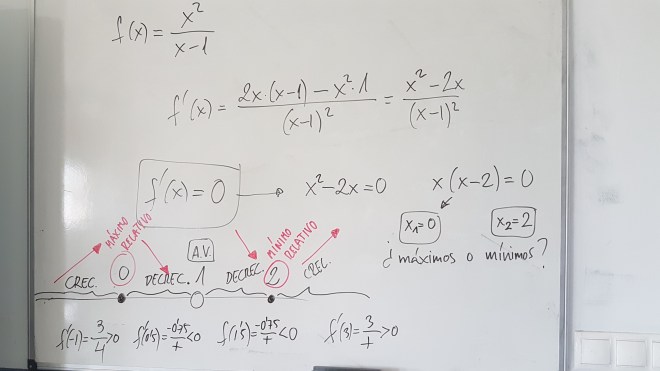 f(x) = x²/(x-1)
f'(x) = (2x·(x-1) - x²·1)/(x-1)² = (x²-2x)/(x-1)²
f'(x) = 0 → x²-2x=0 x(x-2)=0
x₁=0 x₂=2
¿máximos o mínimos?
MÁXIMO RELATIVO A.V. MÍNIMO RELATIVO
CREC. 0 DECREC. 1 DECREC. 2 CREC.
f'(-1)=3/4>0 f'(0'5)=-0'75/+<0 f'(1'5)=-0'75/+<0 f'(3)=3/+>0